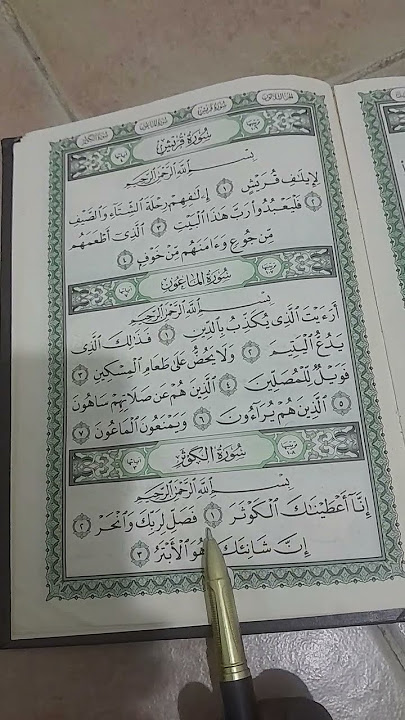 سُورَةُ قُرَيْشٍ
بِسْمِ اللَّهِ الرَّحْمَٰنِ الرَّحِيمِ
لِإِيلَٰفِ قُرَيْشٍ ۝١ إِۦلَٰفِهِمْ رِحْلَةَ الشِّتَآءِ وَالصَّيْفِ
۝٢ فَلْيَعْبُدُوا۟ رَبَّ هَٰذَا الْبَيْتِ ۝٣ الَّذِىٓ أَطْعَمَهُم
مِّن جُوعٍ وَءَامَنَهُم مِّنْ خَوْفٍۭ ۝٤
سُورَةُ الْمَاعُونِ
بِسْمِ اللَّهِ الرَّحْمَٰنِ الرَّحِيمِ
أَرَءَيْتَ الَّذِى يُكَذِّبُ بِالدِّينِ ۝١ فَذَٰلِكَ الَّذِى
يَدُعُّ الْيَتِيمَ ۝٢ وَلَا يَحُضُّ عَلَىٰ طَعَامِ الْمِسْكِينِ ۝٣
فَوَيْلٌ لِّلْمُصَلِّينَ ۝٤ الَّذِينَ هُمْ عَن صَلَاتِهِمْ سَاهُونَ
۝٥ الَّذِينَ هُمْ يُرَآءُونَ ۝٦ وَيَمْنَعُونَ الْمَاعُونَ ۝٧
سُورَةُ الْكَوْثَرِ
بِسْمِ اللَّهِ الرَّحْمَٰنِ الرَّحِيمِ
إِنَّآ أَعْطَيْنَٰكَ الْكَوْثَرَ ۝١ فَصَلِّ لِرَبِّكَ وَانْحَرْ ۝٢
إِنَّ شَانِئَكَ هُوَ الْأَبْتَرُ ۝٣